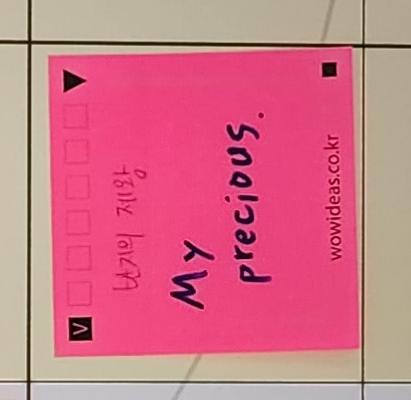 V
반지의 제왕
My
precious.
wowideas.co.kr